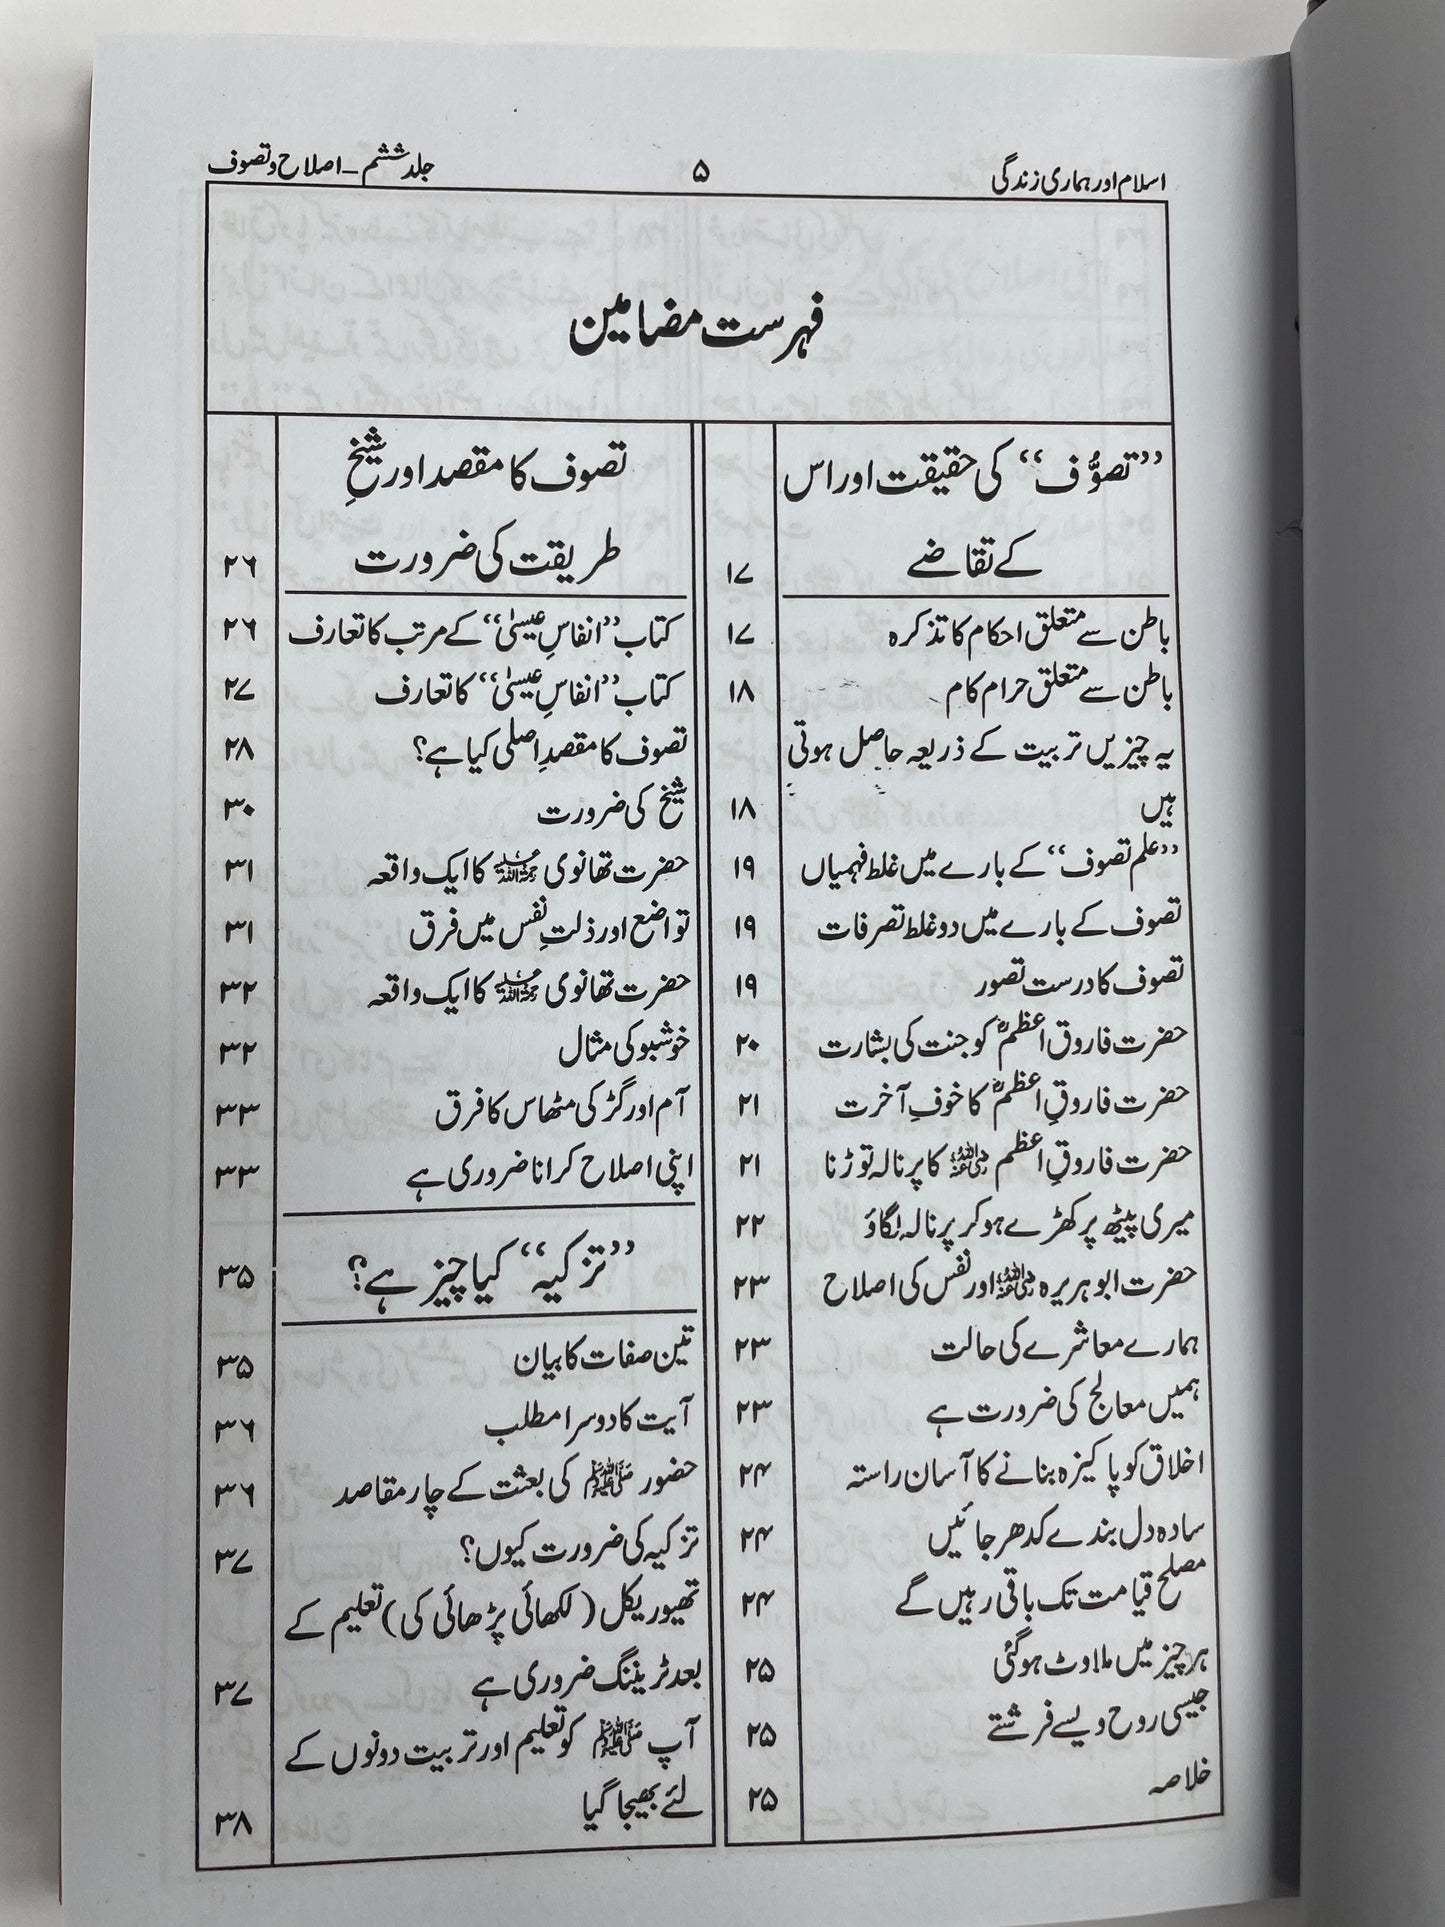 اسلام اور ہماری زندگی
۵
جلد ششم ۔ اصلاح و تصوف
فہرست مضامین
”تصوُّف“ کی حقیقت اور اس
کے تقاضے ۱۷
باطن سے متعلق احکام کا تذکرہ ۱۷
باطن سے متعلق حرام کام ۱۸
یہ چیزیں تربیت کے ذریعہ حاصل ہوتی
ہیں ۱۸
”علم تصوف“ کے بارے میں غلط فہمیاں ۱۹
تصوف کے بارے میں دو غلط تصرفات ۱۹
تصوف کا درست تصور ۱۹
حضرت فاروق اعظمؓ کو جنت کی بشارت ۲۰
حضرت فاروقِ اعظمؓ کا خوفِ آخرت ۲۱
حضرت فاروقِ اعظم رضی اللہ عنہ کا پرنالہ توڑنا ۲۱
میری پیٹھ پر کھڑے ہو کر پرنالہ لگاؤ ۲۲
حضرت ابو ہریرہ رضی اللہ عنہ اور نفس کی اصلاح ۲۳
ہمارے معاشرے کی حالت ۲۳
ہمیں معالج کی ضرورت ہے ۲۳
اخلاق کو پاکیزہ بنانے کا آسان راستہ ۲۴
سادہ دل بندے کدھر جائیں ۲۴
مصلح قیامت تک باقی رہیں گے ۲۴
ہر چیز میں ملاوٹ ہو گئی ۲۵
جیسی روح ویسے فرشتے ۲۵
خلاصہ ۲۵
تصوف کا مقصد اور شیخِ
طریقت کی ضرورت ۲۶
کتاب ”انفاسِ عیسیٰ“ کے مرتب کا تعارف ۲۶
کتاب ”انفاسِ عیسیٰ“ کا تعارف ۲۷
تصوف کا مقصدِ اصلی کیا ہے؟ ۲۸
شیخ کی ضرورت ۳۰
حضرت تھانوی رحمہ اللہ کا ایک واقعہ ۳۱
تواضع اور ذلتِ نفس میں فرق ۳۱
حضرت تھانوی رحمہ اللہ کا ایک واقعہ ۳۲
خوشبو کی مثال ۳۲
آم اور گڑ کی مٹھاس کا فرق ۳۳
اپنی اصلاح کرانا ضروری ہے ۳۳
”تزکیہ“ کیا چیز ہے؟ ۳۵
تین صفات کا بیان ۳۵
آیت کا دوسرا مطلب ۳۶
حضور ﷺ کی بعثت کے چار مقاصد ۳۶
تزکیہ کی ضرورت کیوں؟ ۳۷
تھیوریکل (لکھائی پڑھائی کی) تعلیم کے
بعد ٹریننگ ضروری ہے ۳۷
آپ ﷺ کو تعلیم اور تربیت دونوں کے
لئے بھیجا گیا ۳۸